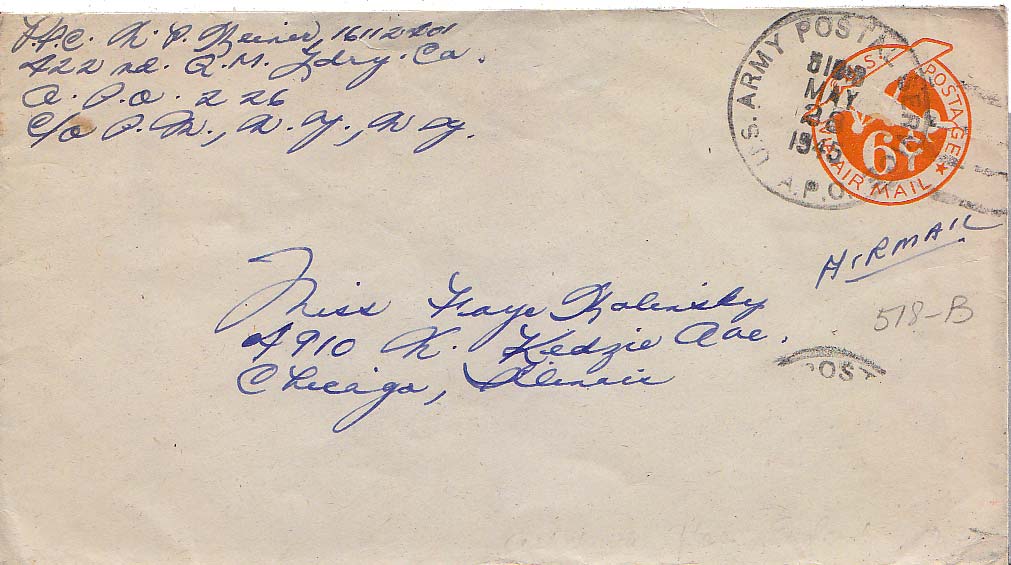 Pfc. N. P. Reiner, 16112401
422 nd. Q.M. Ldry. Co.
A.P.O. 226
C/o P.M., N.Y., N.Y.
U.S. ARMY POSTAL SERVICE
MAY
28
1945
A.P.O.
U.S. POSTAGE
6¢
AIR MAIL
AIRMAIL
518-B
Miss Faye Rolinsky
4910 N. Kedzie Ave.
Chicago, Illinois
POST